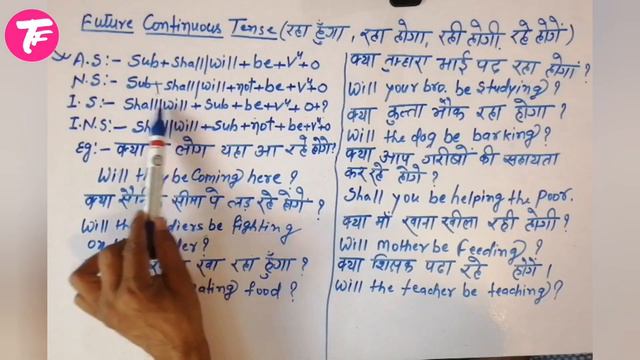 Future Continuous Tense (रहा हुँगा, रहा होगा, रही होगी, रहे होगें)
A.S:- Sub+Shall/will+be+V⁴+O
N.S:- Sub+shall/will+not+be+V⁴+O
I.S:- Shall/will+Sub+be+V⁴+O+?
I.N.S:- Shall/will+Sub+not+be+V⁴+O
Eg:- क्या लोग यहा आ रहे होंगे?
Will they be Coming here?
क्या सीमा पे लड़ रहे होंगे?
Will the be fighting
on
रहा हुँगा?
food?
क्या तुम्हारा भाई पढ़ रहा होगा?
Will your bro. be Studying?
क्या कुत्ता भौक रहा होगा?
Will the dog be barking?
क्या आप गरीबों की सहायता
कर रहे होंगे?
Shall you be helping the Poor.
क्या माँ खाना खीला रही होगी?
Will mother be feeding?
क्या शिक्षक पढा रहे होगें।
Will the teacher be teaching?